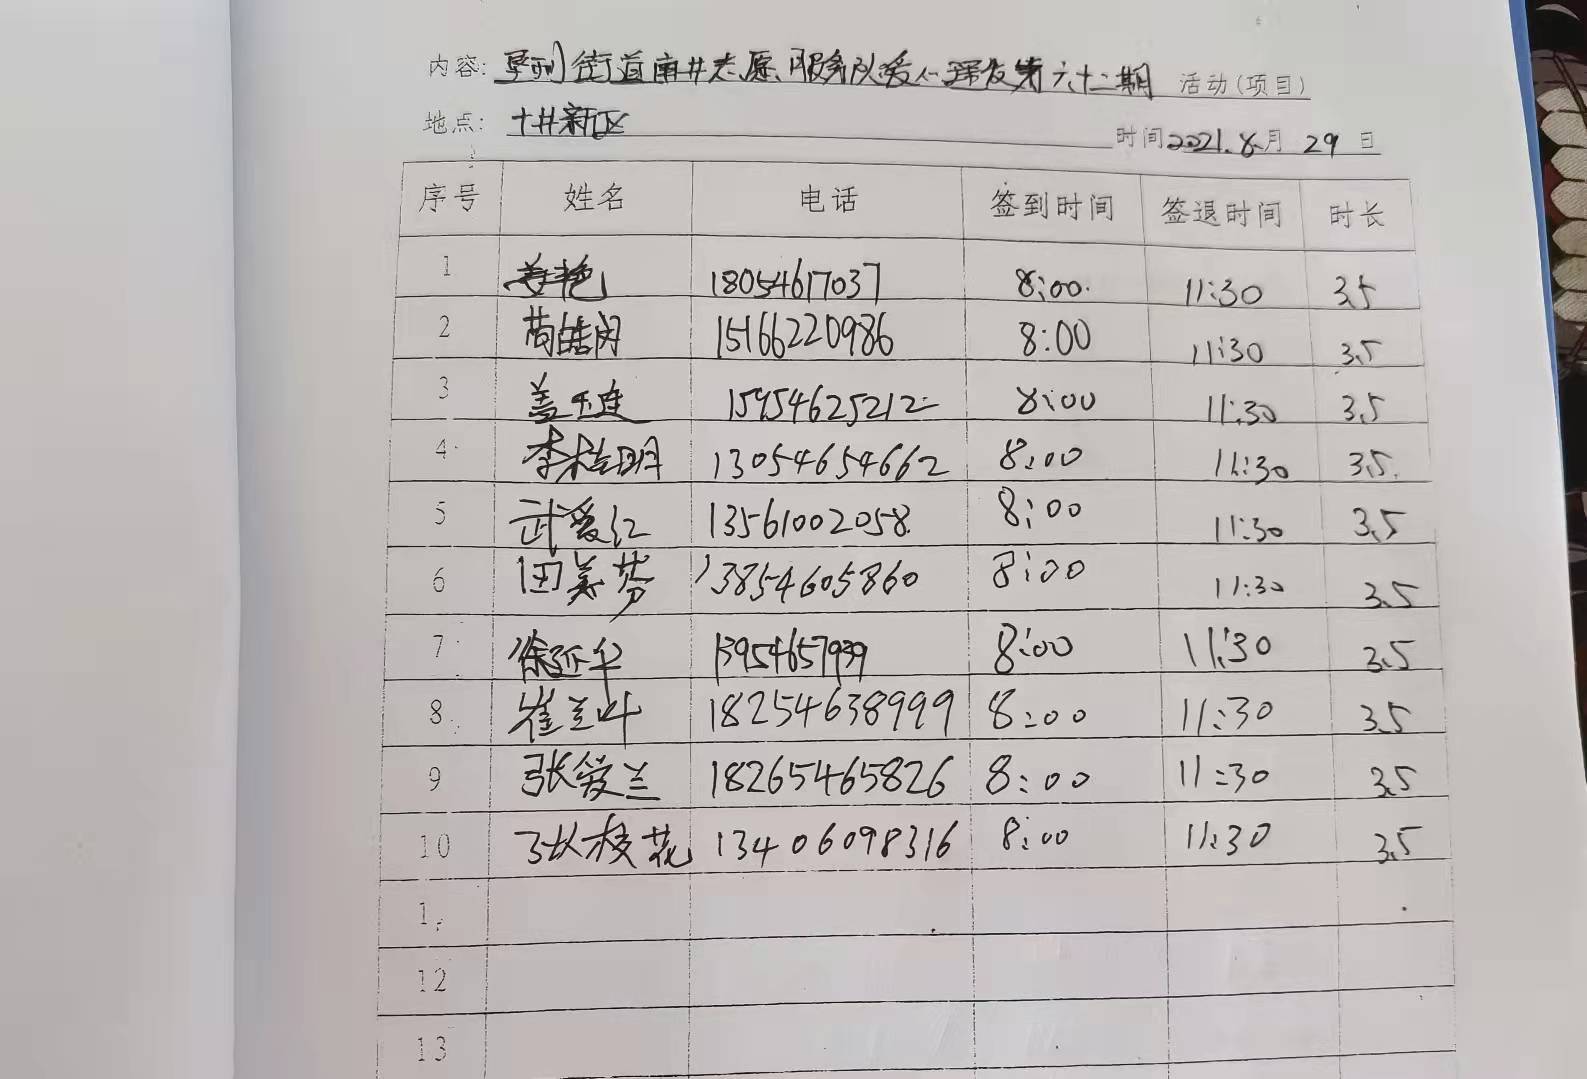 内容: 垦利街道南井志愿服务队爱心理发第六十二期 活动(项目)
地点: 十井新区 时间 2021.8月 29 日
序号 姓名 电话 签到时间 签退时间 时长
1 姜艳 18054617037 8:00 11:30 3.5
2 苟皓月 15166220986 8:00 11:30 3.5
3 盖玉连 15954625212 8:00 11:30 3.5
4 李桂明 13054654662 8:00 11:30 3.5
5 武爱红 13561002058 8:00 11:30 3.5
6 田美芬 13854605860 8:00 11:30 3.5
7 徐延华 13954657939 8:00 11:30 3.5
8 崔兰叶 18254638999 8:00 11:30 3.5
9 张爱兰 18265465826 8:00 11:30 3.5
10 张枝花 13406098316 8:00 11:30 3.5
1
12
13